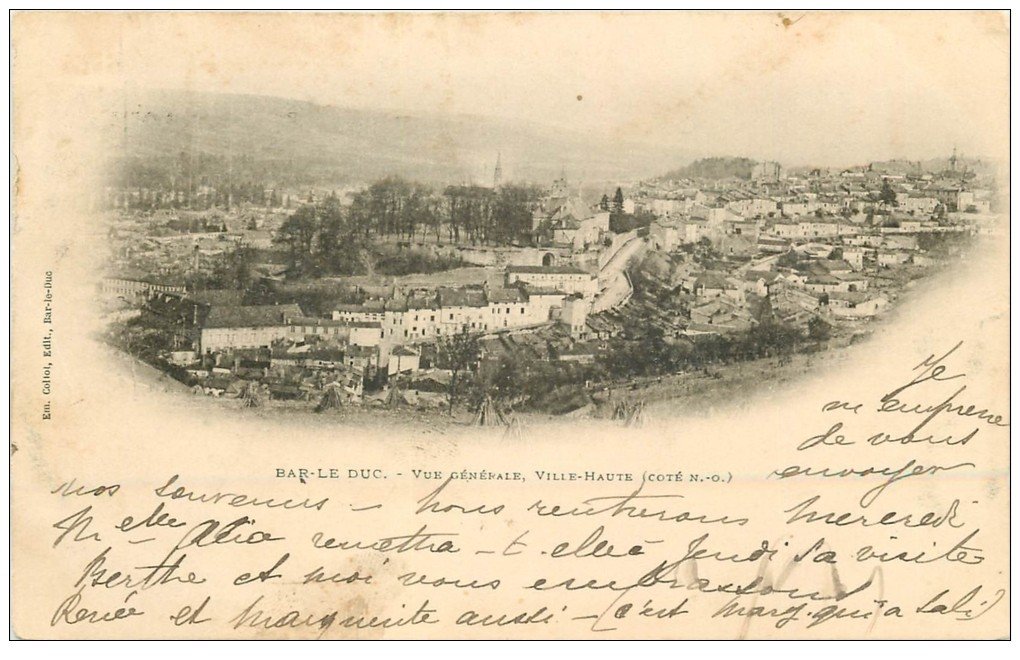 Em. Collot, Edit., Bar-le-Duc
BAR-LE DUC. - VUE GÉNÉRALE, VILLE-HAUTE (COTÉ N.-O.)
Je
m'empresse
de vous
envoyer
nos souvenirs - Nous rentrerons Mercredi
Melle Alia remettra-t-elle Jeudi sa visite
Berthe et moi vous embrassons
Renée et Marguerite aussi - c'est Marg. qui a sali